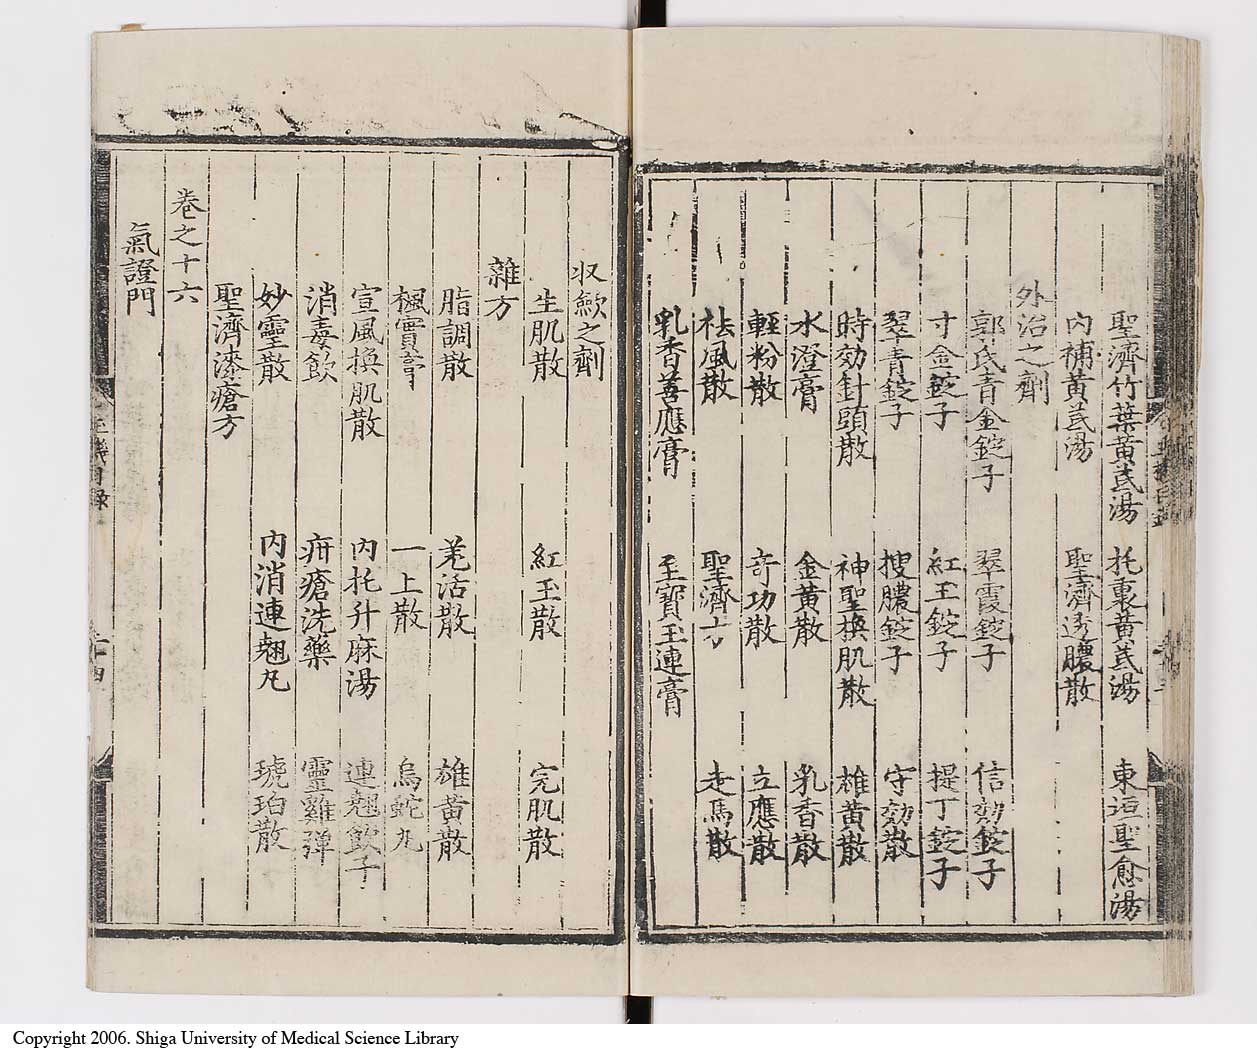 聖濟竹葉黃芪湯　托裏黃芪湯　東垣聖愈湯
內補黃芪湯　聖濟透膿散
外治之劑
郭氏青金錠子　翠霞錠子　信効錠子
寸金錠子　紅玉錠子　提丁錠子
翠青錠子　搜膿錠子　守効散
時効針頭散　神聖換肌散　雄黃散
水澄膏　金黃散　乳香散
輕粉散　奇功散　立應散
祛風散　聖濟方　走馬散
乳香善應膏　至寶玉連膏
収歛之劑
生肌散　紅玉散　完肌散
雜方
脂調散　羌活散　雄黃散
楓實膏　一上散　烏蛇丸
宣風換肌散　內托升麻湯　連翹飲子
消毒飲　疥瘡洗藥　靈雞彈
妙靈散　內消連翹丸　琥珀散
聖濟漆瘡方
卷之十六
氣證門
Copyright 2006. Shiga University of Medical Science Library